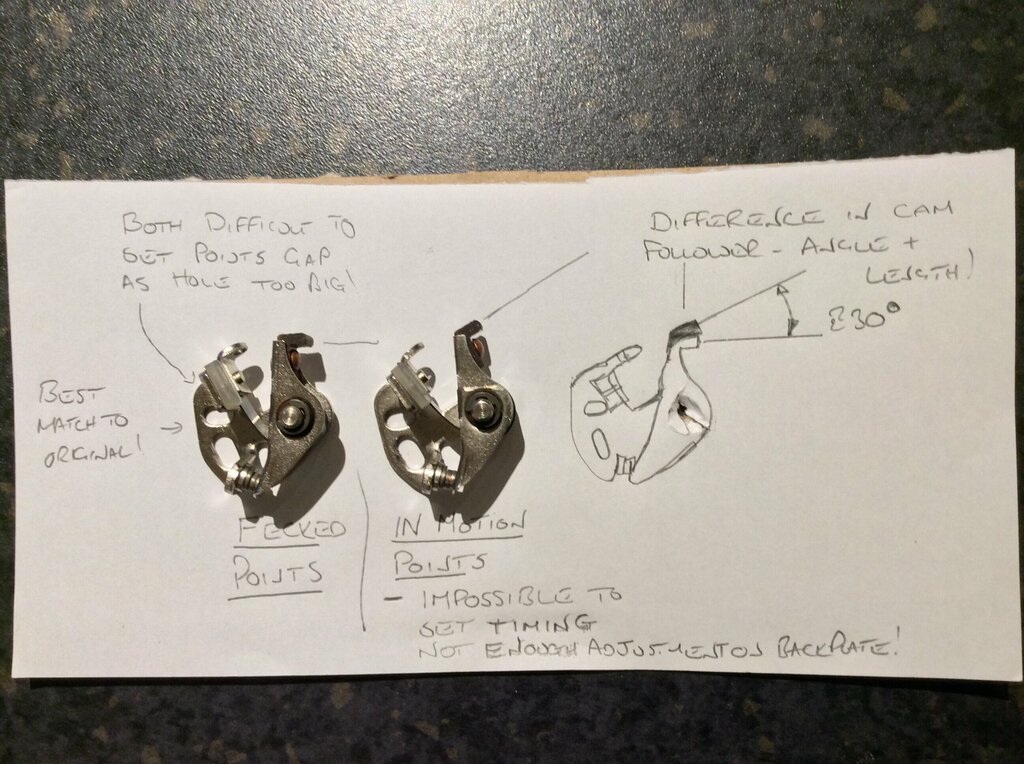 BOTH DIFFICULT TO
SET POINTS GAP
AS HOLE TOO BIG!
DIFFERENCE IN CAM
FOLLOWER - ANGLE +
LENGTH!
±30°
BEST
MATCH TO
ORIGINAL!
FECKED
POINTS
IN MOTION
POINTS
- IMPOSSIBLE TO
SET TIMING
NOT ENOUGH ADJUSTMENT ON BACKPLATE!